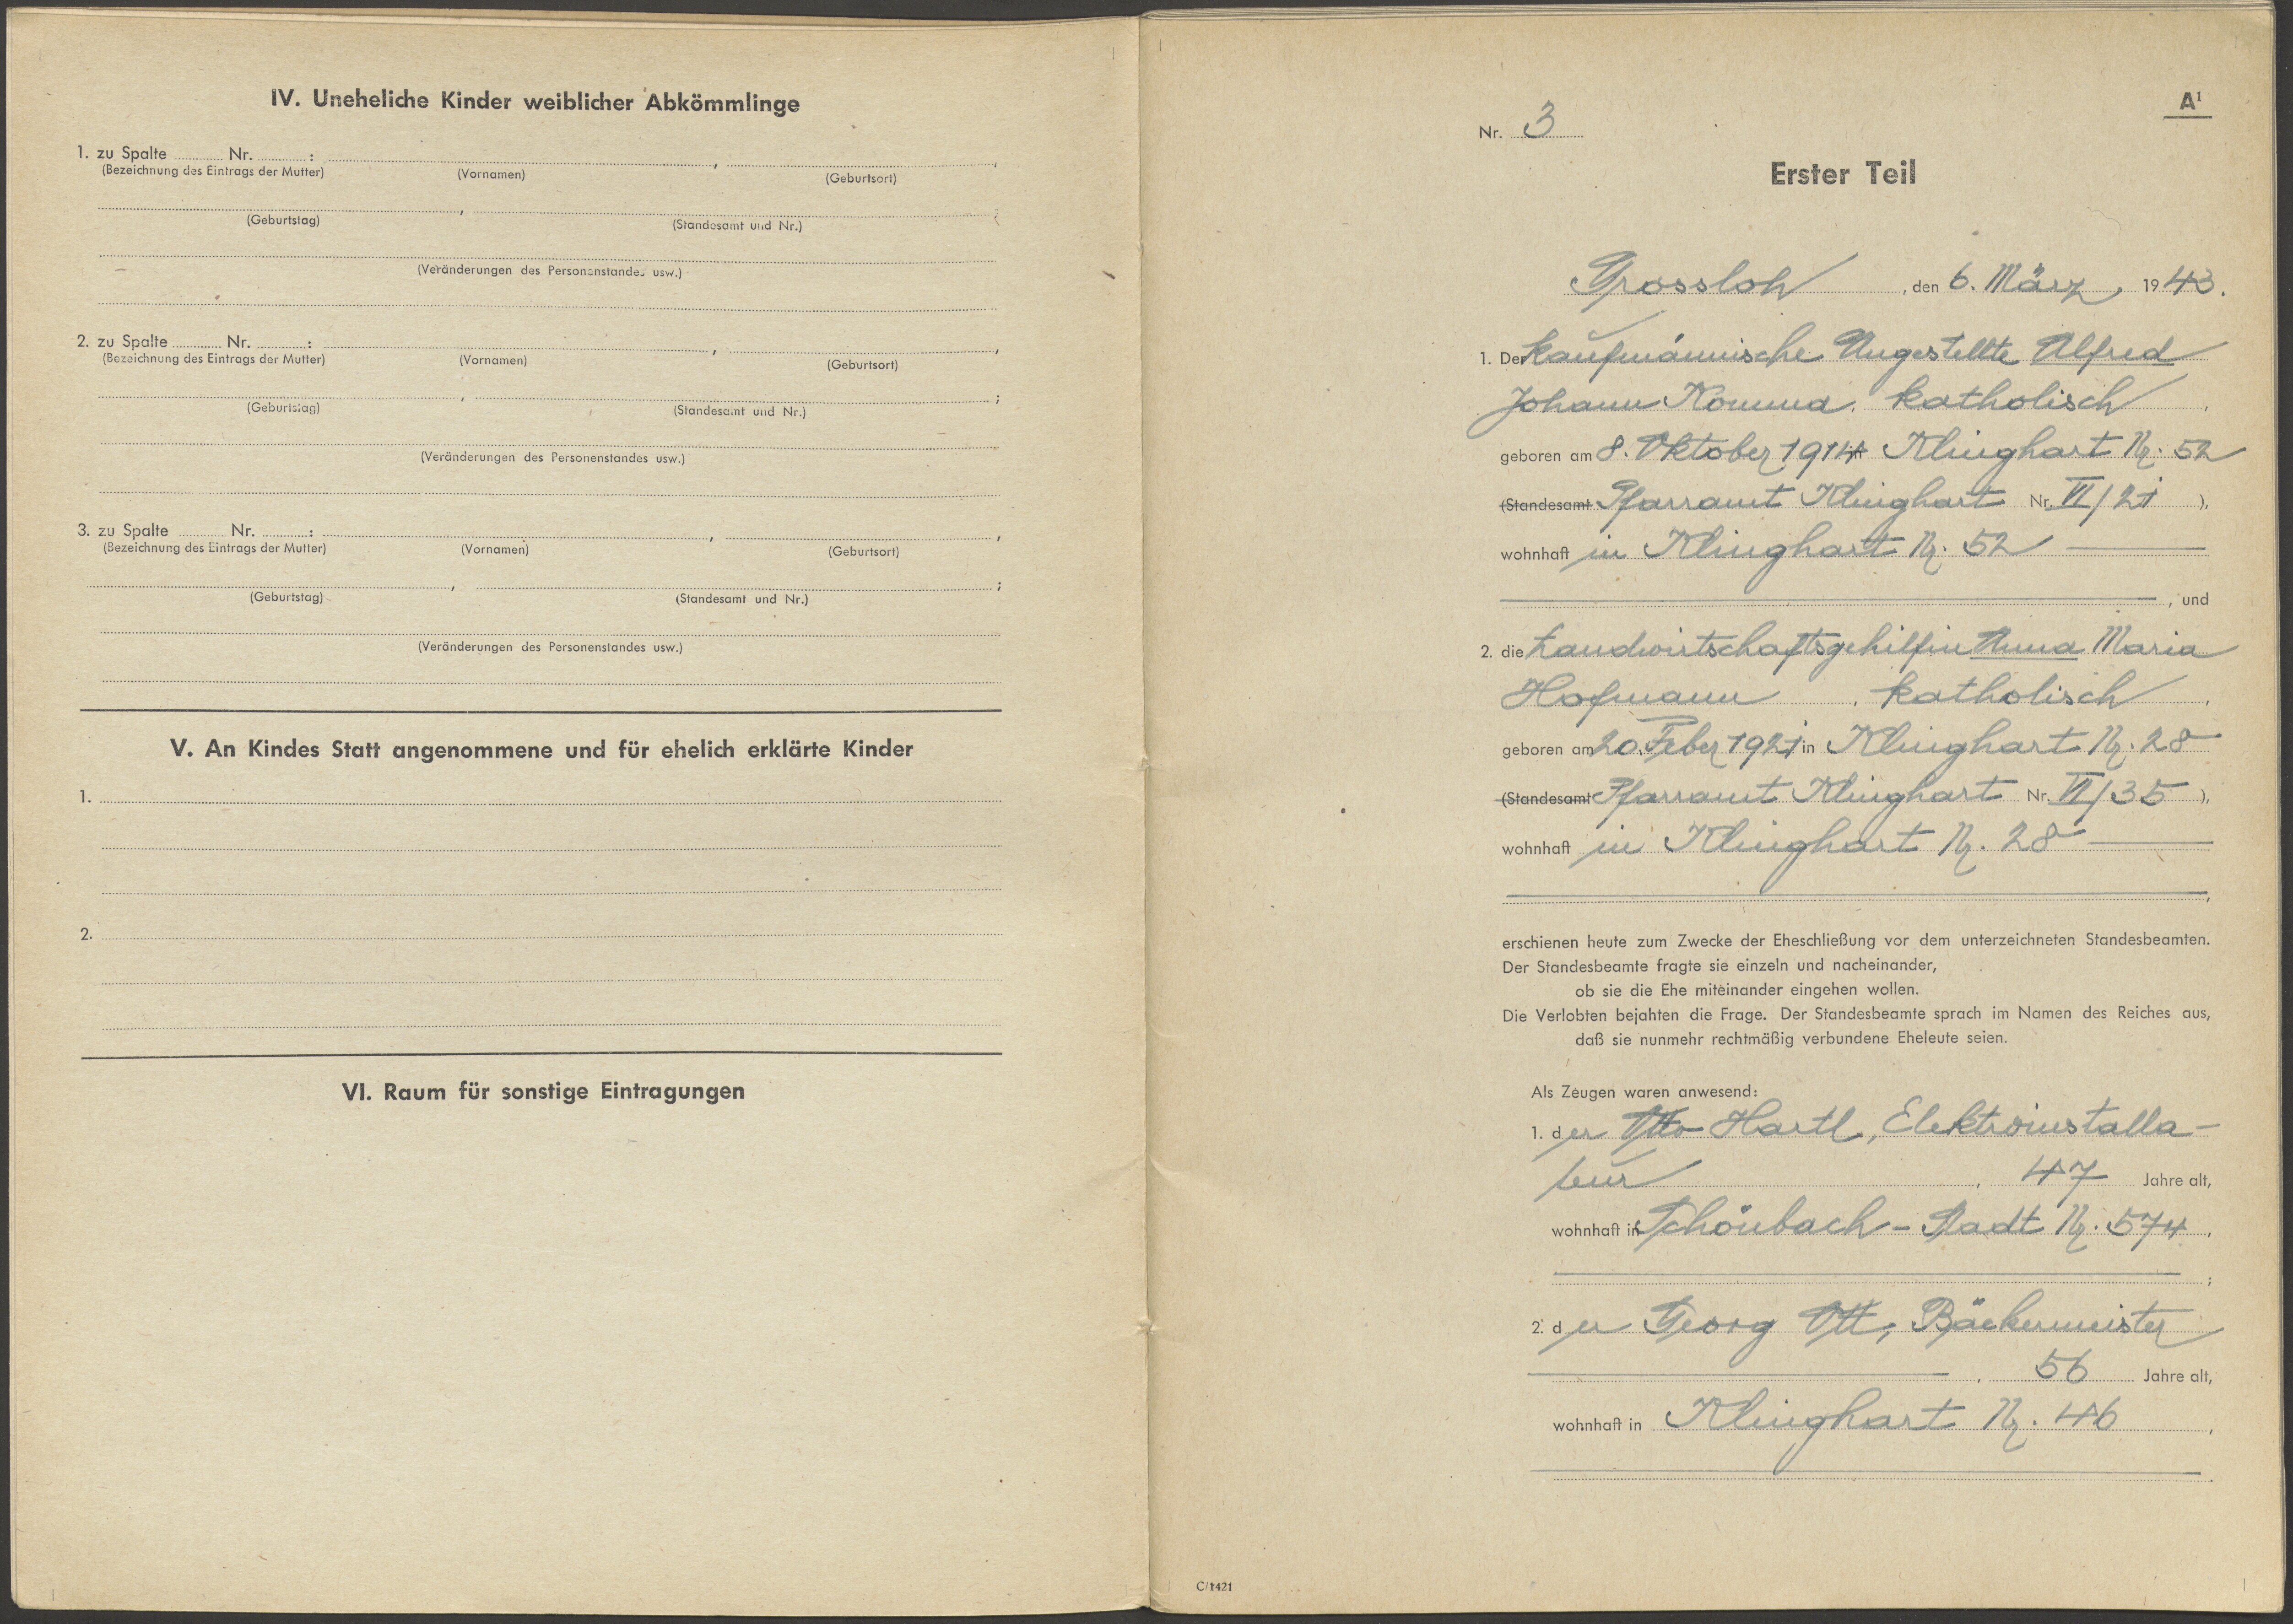 IV. Uneheliche Kinder weiblicher Abkömmlinge
1. zu Spalte ............ Nr. ............ : ............ , ............ ,
(Bezeichnung des Eintrags der Mutter) (Vornamen) (Geburtsort)
............ , ............
(Geburtstag) (Standesamt und Nr.)
(Veränderungen des Personenstandes usw.)
2. zu Spalte ............ Nr. ............ : ............ , ............ ,
(Bezeichnung des Eintrags der Mutter) (Vornamen) (Geburtsort)
............ , ............ ;
(Geburtstag) (Standesamt und Nr.)
(Veränderungen des Personenstandes usw.)
3. zu Spalte ............ Nr. ............ : ............ , ............ ,
(Bezeichnung des Eintrags der Mutter) (Vornamen) (Geburtsort)
............ , ............ ;
(Geburtstag) (Standesamt und Nr.)
(Veränderungen des Personenstandes usw.)
V. An Kindes Statt angenommene und für ehelich erklärte Kinder
1.
2.
VI. Raum für sonstige Eintragungen
A¹
Nr. 3
Erster Teil
Grossloh, den 6. März 1943.
1. Der kaufmännische Angestellte Alfred
Johann Komma, katholisch,
geboren am 8. Oktober 1914 Klinghart Nr. 52
(Standesamt Pfarramt Klinghart Nr. VI/21),
wohnhaft in Klinghart Nr. 52
, und
2. die Landwirtschaftsgehilfin Anna Maria
Hofmann, katholisch,
geboren am 20. Feber 1921 in Klinghart Nr. 28
(Standesamt Pfarramt Klinghart Nr. VI/35),
wohnhaft in Klinghart Nr. 28
,
erschienen heute zum Zwecke der Eheschließung vor dem unterzeichneten Standesbeamten.
Der Standesbeamte fragte sie einzeln und nacheinander,
ob sie die Ehe miteinander eingehen wollen.
Die Verlobten bejahten die Frage. Der Standesbeamte sprach im Namen des Reiches aus,
daß sie nunmehr rechtmäßig verbundene Eheleute seien.
Als Zeugen waren anwesend:
1. der Otto Hartl, Elektroinstalla-
teur, 47 Jahre alt,
wohnhaft in Schönbach-Stadt Nr. 574,
;
2. der Georg Ott, Bäckermeister
, 56 Jahre alt,
wohnhaft in Klinghart Nr. 46,
.
C/1421